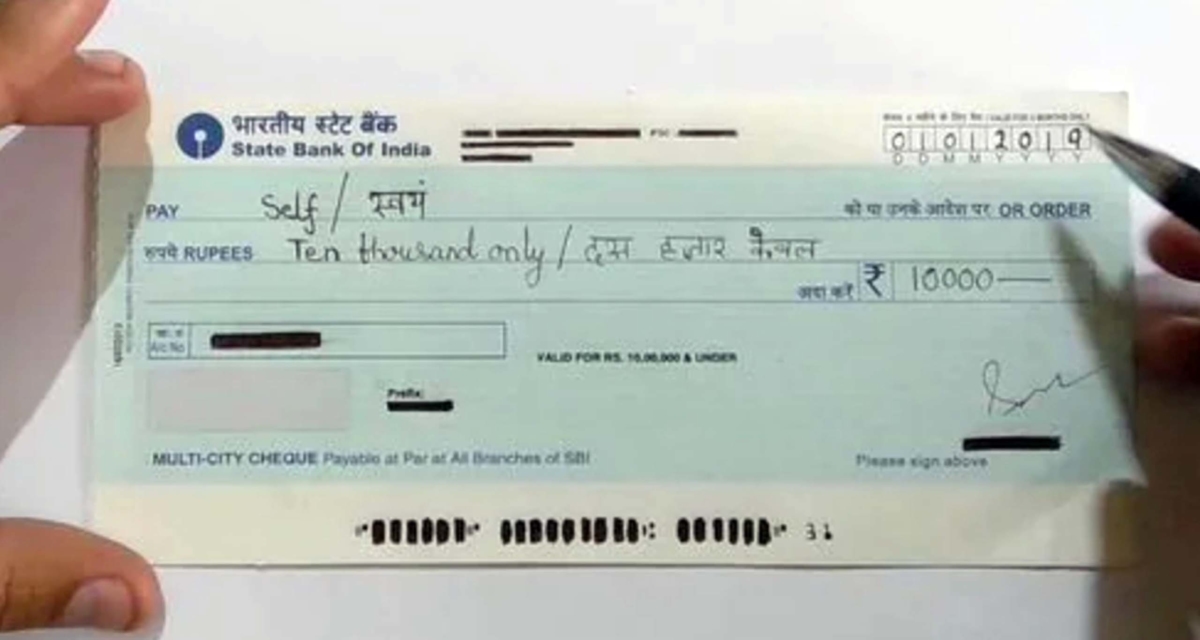 भारतीय स्टेट बैंक
State Bank Of India
0 1 0 1 2 0 1 9
D D M M Y Y Y Y
PAY Self / स्वयं को या उनके आदेश पर OR ORDER
रुपये RUPEES Ten thousand only / दस हजार केवल
अदा करें ₹ 10000
A/c No.
VALID FOR RS. 10,00,000 & UNDER
Prefix:
MULTI-CITY CHEQUE Payable at Par at All Branches of SBI
Please sign above
31